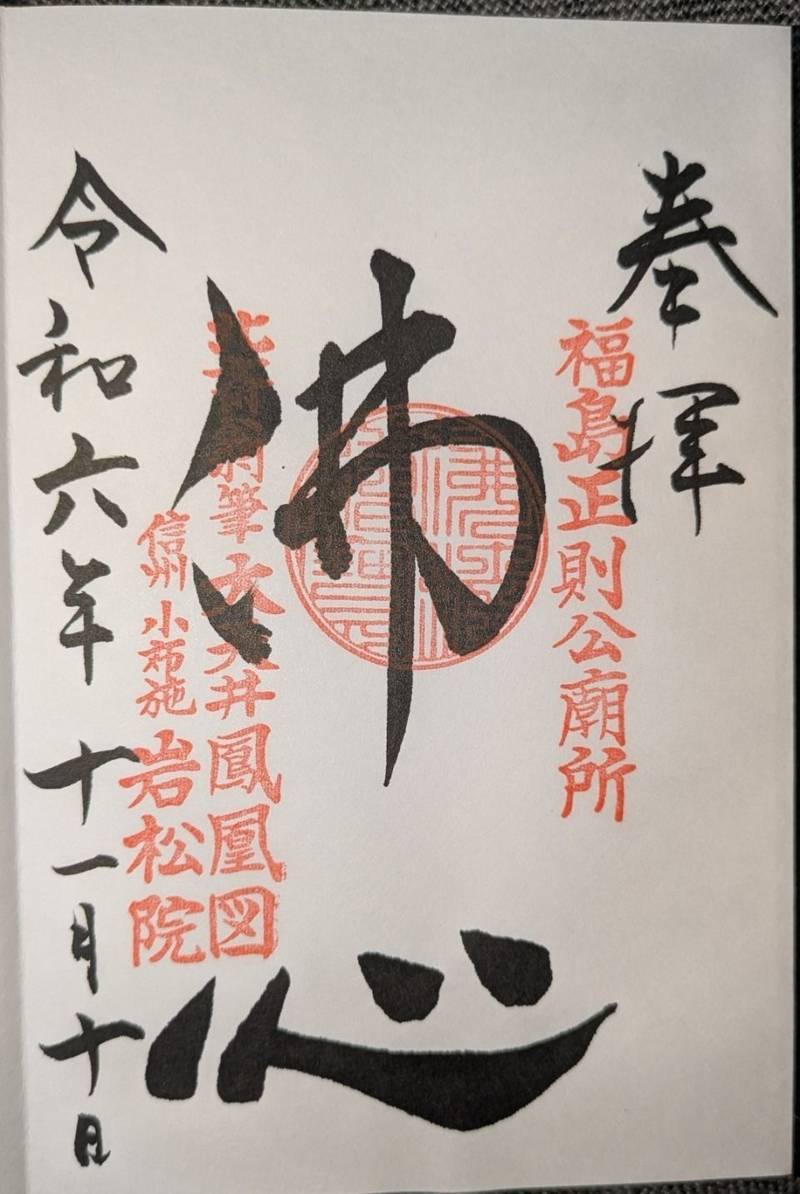 奉拝
福島正則公廟所
佛心
筆 大天井鳳凰図
信州 小布施 岩松院
令和六年十一月十日